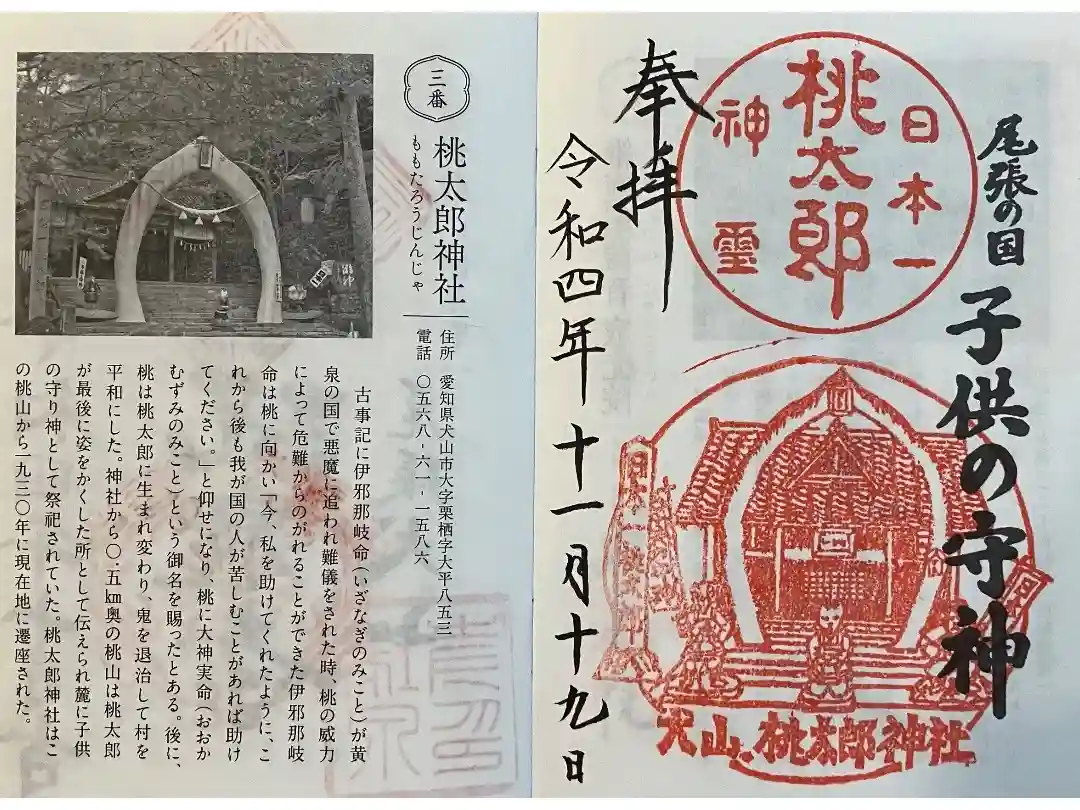 三番
桃太郎神社
ももたろうじんじゃ
住所 愛知県犬山市大字栗栖字大平八五三
電話 〇五六八-六一-一五八六
古事記に伊邪那岐命（いざなぎのみこと）が黄
泉の国で悪魔に追われ難儀をされた時、桃の威力
によって危難からのがれることができた伊邪那岐
命は桃に向かい「今、私を助けてくれたように、こ
れから後も我が国の人が苦しむことがあれば助け
てください。」と仰せになり、桃に大神実命（おおか
むずみのみこと）という御名を賜ったとある。後に、
桃は桃太郎に生まれ変わり、鬼を退治して村を
平和にした。神社から〇.五㎞奥の桃山は桃太郎
が最後に姿をかくした所として伝えられ麓に子供
の守り神として祭祀されていた。桃太郎神社はこ
の桃山から一九三〇年に現在地に遷座された。
尾張の国
子供の守神
日本一
桃太郎
神霊
奉拝
令和四年十一月十九日
犬山、桃太郎神社